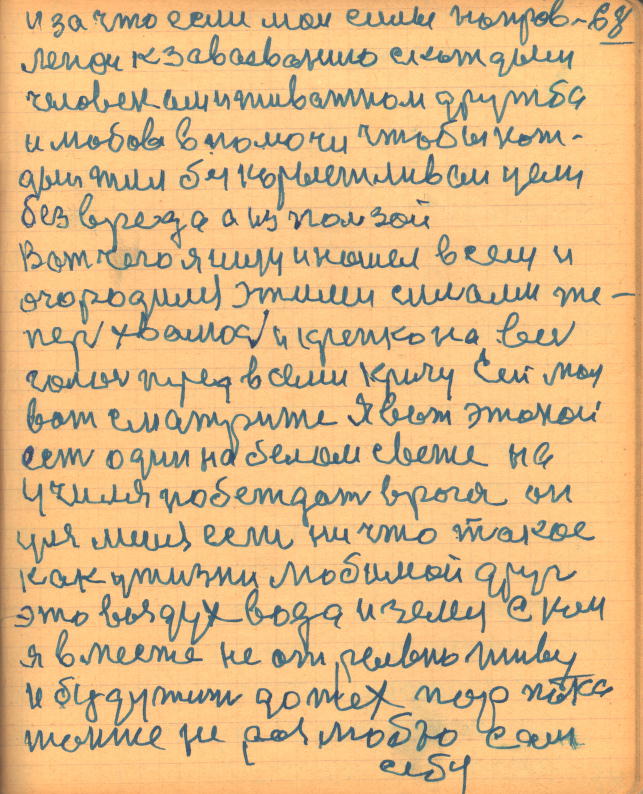 и за что если мои силы нопров- 68
лени к заваованию с кождым
человеком и животном дружба
и любов в помочи чтобы кож-
дый жил бы корыстливой цели
без вреда а из ползой
Вот чего я ищу и нашел в сем и
огородилса этими силами те-
пер хвалюс и крепко на вес
голос пред всеми кричу Ей мои
вот сматрите Я вот этокой
ест один на белом свете на
учился побеждат врага он
для меня если ни что такое
как у жизни любимой друг
это воздух вода и земля С кем
я вместе не отрывно живу
и буду жит до тех пор пока
толке не разлюблю сам
себя